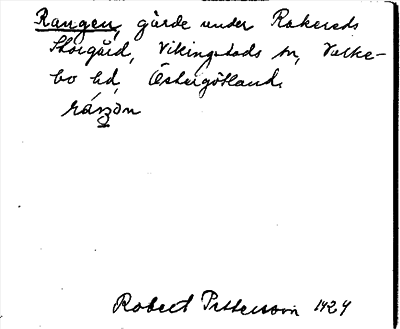 Rangen, gärde under Rakereds
Storgård, Vikingstads sn, Valke-
bo hd, Östergötland.
ráŋən
Robert Pettersson 1924